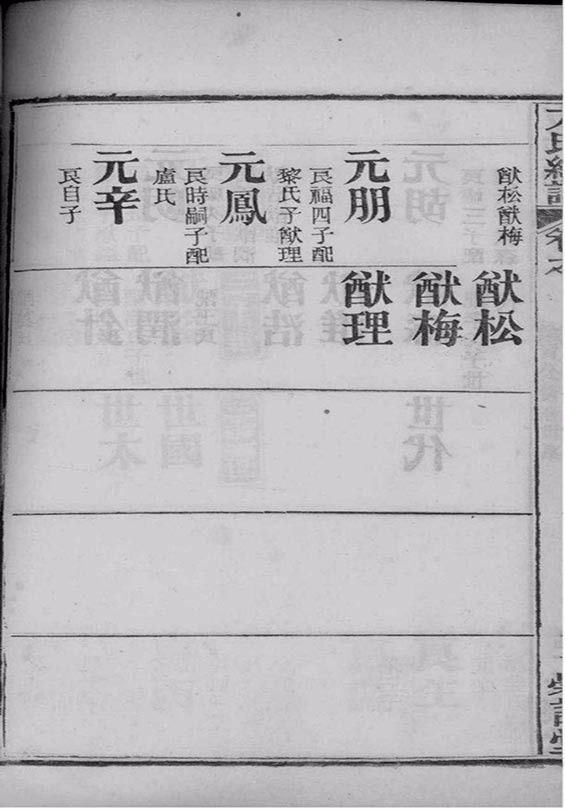 氏續譜
卷之
猷松猷梅
元朋
艮福四子配
黎氏子猷理
元鳳
艮時嗣子配
盧氏
元辛
艮自子
猷松
猷梅
猷理